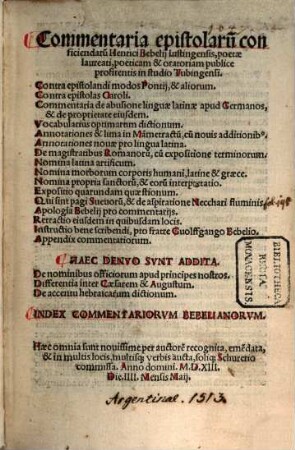 Commentaria epistolarū con
ficiendarū Henrici Bebelij Iustingensis, poetæ
laureati, poeticam & oratoriam publice
profitentis in studio Tubingensi.
Contra epistolandi modos Pontij, & aliorum.
Contra epistolas Caroli.
Commentaria de abusione linguæ latinæ apud Germanos,
& de proprietate eiusdem.
Vocabularius optimarum dictionum.
Annotationes & luna in Mametractū, cū nouis additionibꝰ.
Annotationes nouæ pro lingua latina.
De magistratibus Romanorū, cū expositione terminorum.
Nomina latina artificum.
Nomina morborum corporis humani, latine & græce.
Nomina propria sanctorū, & eorū interpretatio.
Expositio quarundam quæstionum.
Qui sint pagi Sueuorū, & de aspiratione Necchari fluminis.
Apologia Bebelij pro commentarijs.
Retractio eiusdem in quibusdam locis.
Instructio bene scribendi, pro fratre Vuolffgango Bebelio.
Appendix commentariorum.
HAEC DENVO SVNT ADDITA.
De nominibus officiorum apud principes nostros.
Differentia inter Cæsarem & Augustum.
De accentu hebraicarum dictionum.
INDEX COMMENTARIORVM BEBELIANORVM.
Hæc omnia sunt nouissime per auctorē recognita, emēdata,
& in multis locis, multisq; verbis aucta, soliq; Schurerio
commissa. Anno domini. M.D.XIII.
Die. IIII. Mensis Maij.
Argentinae. 1513.
BIBLIOTHECA
REGIA
MONACENSIS